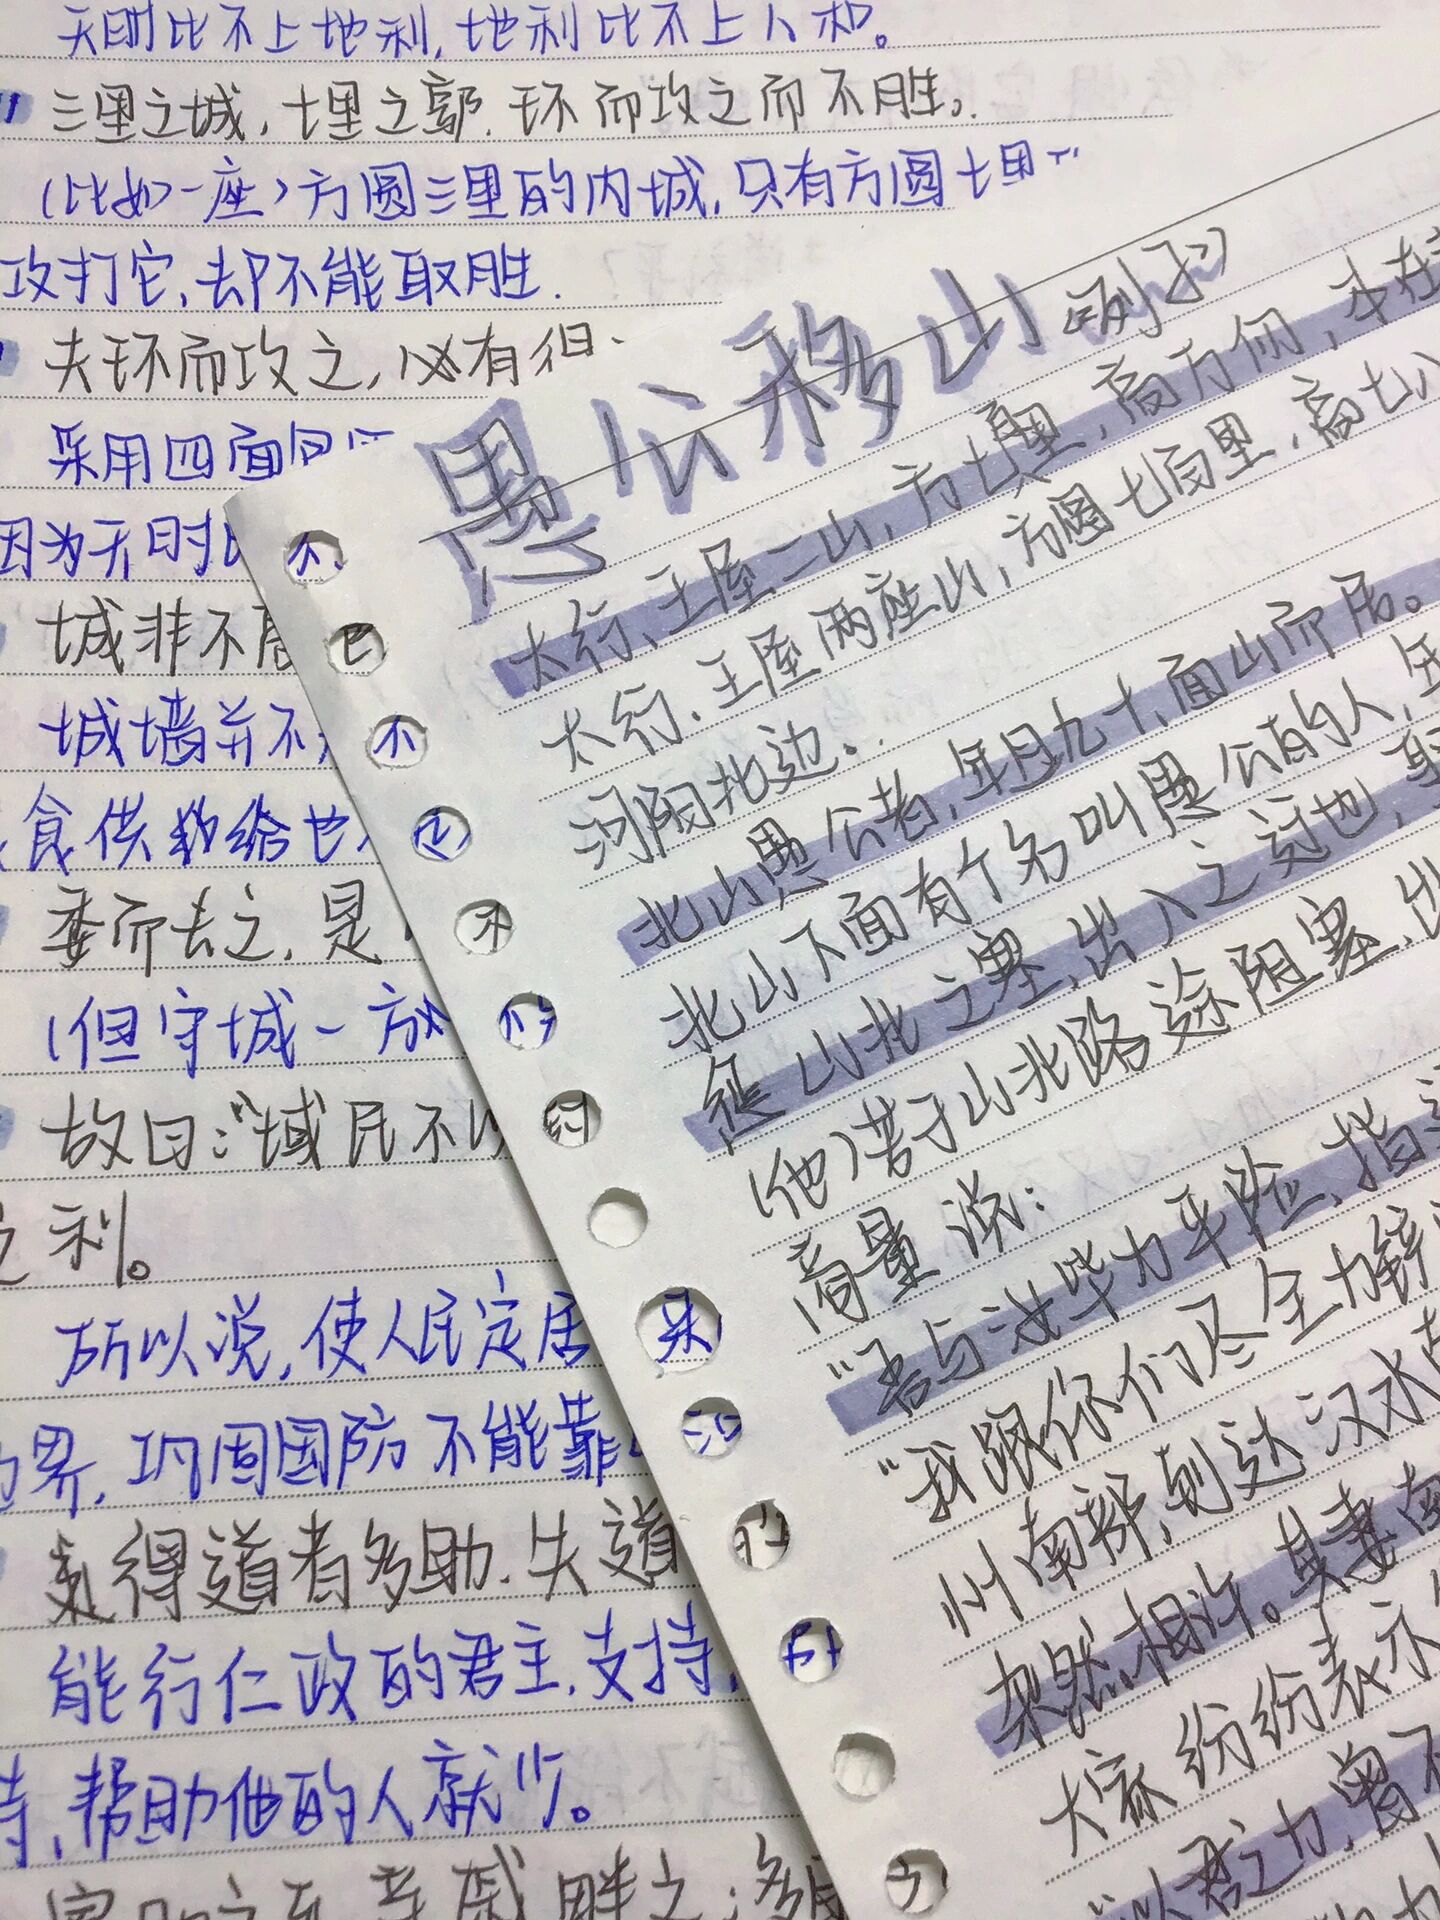 天时比不上地利,地利比不上人和。
三里之城,七里之郭,环而攻之而不胜。
(比如一座)方圆三里的内城,只有方圆七里
攻打它,却不能取胜.
夫环而攻之,必有得
采用四面包
因为天时
城非不高
城墙并不
食供给也
委而去之,是
(但守城一方
故曰:"域民不以
之利。
所以说,使人民定居
界,巩固国防不能靠
得道者多助.失道
能行仁政的君主,支持
持,帮助他的人就少。
愚公移山《列子》
太行、王屋二山,方七百里,高万仞,本在
太行.王屋两座山,方圆七百里,高七八
河阳北边。
北山愚公者,年且九十,面山而居。
北山下面有个名叫愚公的人,年
惩山北之塞,出入之迂也,聚
(他)苦于山北路途阻塞,出
商量说:
"吾与汝毕力平险,指通
"我跟你们尽全力铲
州南部,到达汉水南
杂然相许。其妻献
大家纷纷表示
"以君之力,曾不